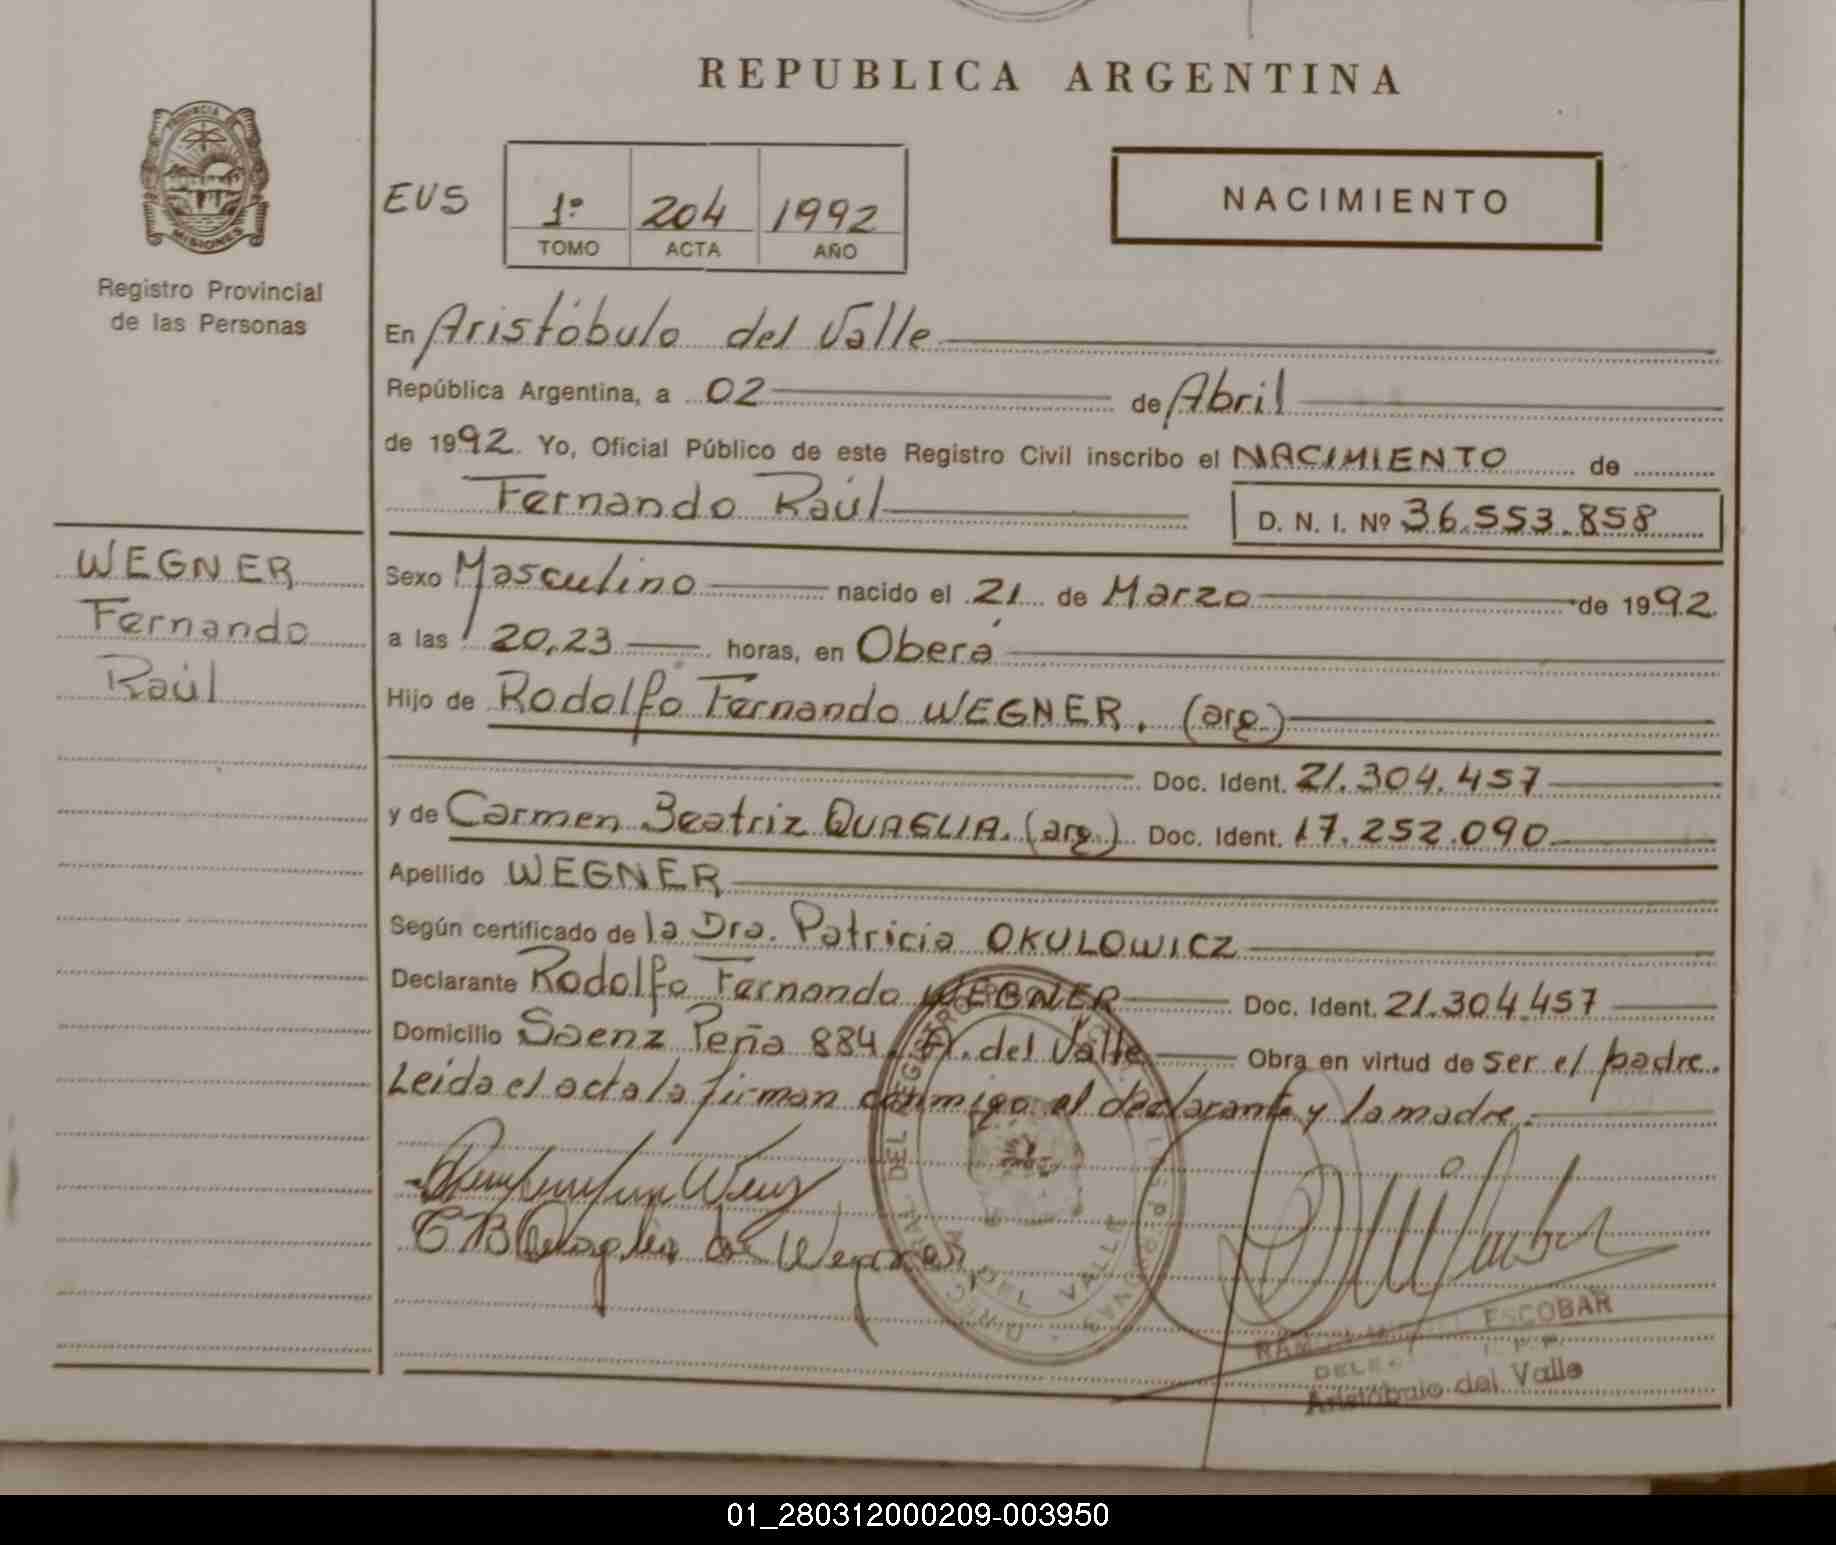 REPUBLICA ARGENTINA
PROVINCIA
MISIONES
Registro Provincial
de las Personas
EUS
1º 204 1992
TOMO ACTA AÑO
NACIMIENTO
En Aristóbulo del Valle
República Argentina, a 02 de Abril
de 1992. Yo, Oficial Público de este Registro Civil inscribo el NACIMIENTO de
Fernando Raúl D. N. I. Nº 36.553.858
WEGNER
Fernando
Raúl
Sexo Masculino nacido el 21 de Marzo de 1992.
a las 20,23 horas, en Oberá
Hijo de Rodolfo Fernando WEGNER. (arg.)
Doc. Ident. 21.304.457
y de Carmen Beatriz QUAGLIA. (arg.) Doc. Ident. 17.252.090
Apellido WEGNER
Según certificado de la Dra. Patricia OKULOWICZ
Declarante Rodolfo Fernando WEGNER Doc. Ident. 21.304.457
Domicilio Saenz Peña 884. A. del Valle Obra en virtud de ser el padre.
Leida el acta la firman conmigo el declarante y la madre.
ESCOBAR
Aristóbulo del Valle
01_280312000209-003950